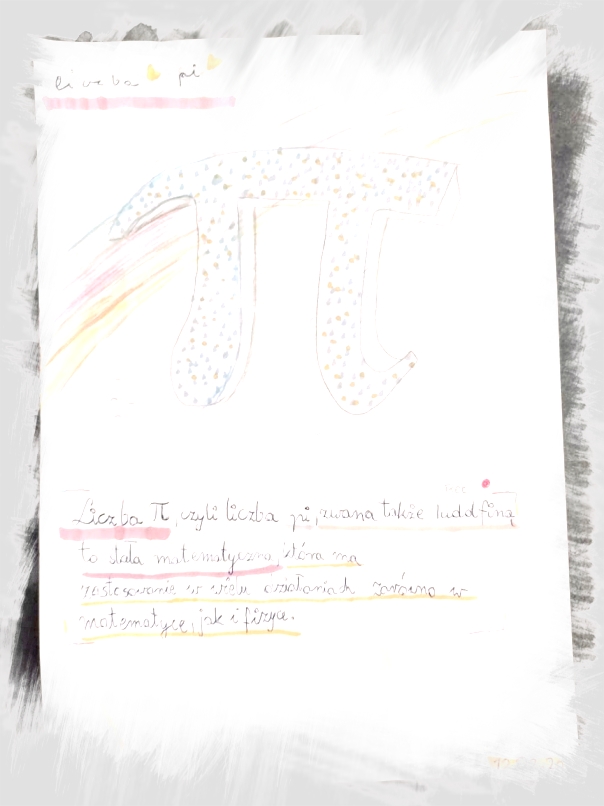 liczba pi
Liczba π, czyli liczba pi, zwana także luddfiną
to stała matematyczna, która ma
zastosowanie w wielu działaniach zarówno w
matematyce, jak i fizyce.